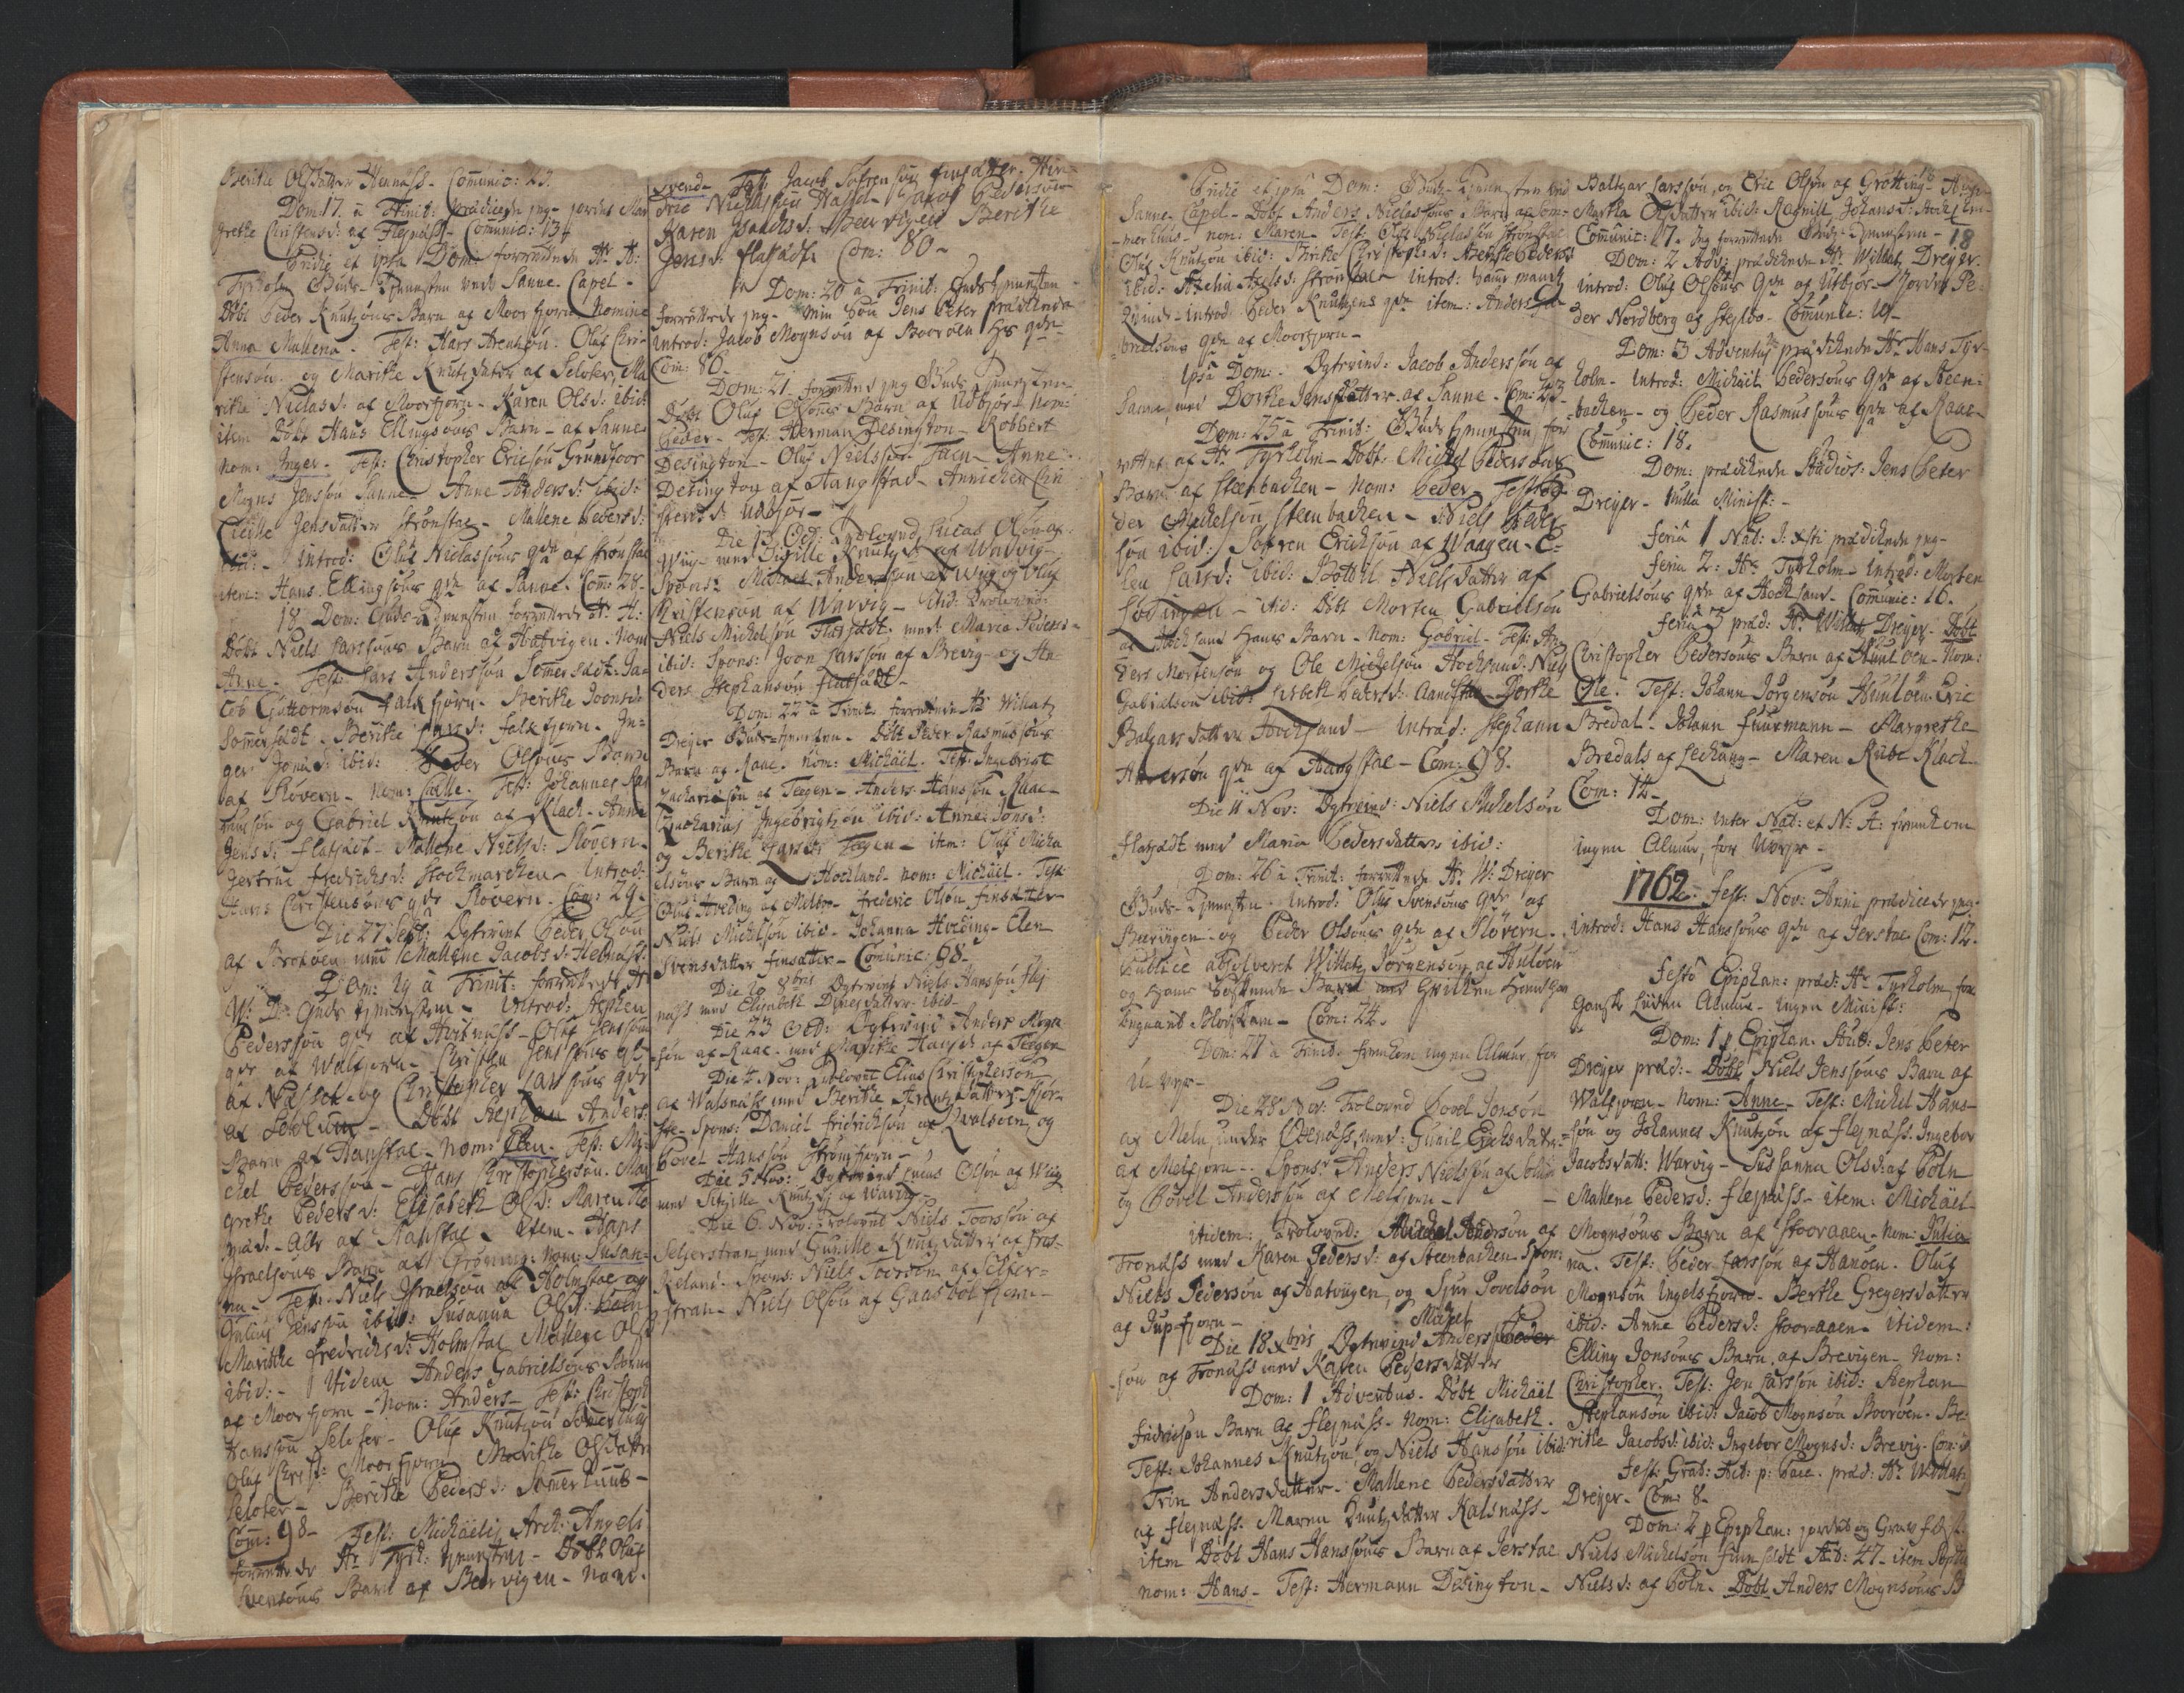 Berithe Olsdatter Hennass. Comunic: 23.
Dom 17. à Trinit: prædicede jeg - jordet Mar
grethe Christensd: af Flejnass. Comunic: 13.
Pridie et ipsa Dom: forrettede Hr. H:
Tyrholm Guds Tjenesten ved Sanne Capel -
Døbt Peder Knutzøns Barn af Moorfjorn Nomine
Anna Mallena. Test: Hans Arentzøn. Oluf Chri-
stensøn og Marithe Knutzdatter af Seloter, Ma
rithe Niclasd: af Moorfjorn - Karen Olsd: ibid:
item Døbt Hans Ellingsøns Barn - af Sanne
nom: Inger. Test: Christopher Ericsøn Grundfoor
Mogns Jenssøn Sanne - Anne Andersd: ibid:
Cicilie Jensdatter Strønstae - Mallene Pedersd:
ibid: - introd: Oluf Niclassøns qde af Strønstae
item: Hans Ellingsøns qde af Sanne. Com: 28.
18 Dom: Guds Tjenesten forrettede Hr. H:
Døbt Niels Larssøns Barn af Hatvigen. Nom
Anne. Test: Lars Anderssøn Somersædt. Ja-
cob Guttormsøn Falkfjorn. Berithe Joensd:
Somersædt. Berithe Larsd: Falkfjorn. In-
ger Jonsd: ibid: Peder Olsøns Barn
af Støvern - nom: Cicille. Test: Johannes Ras
mussøn og Gabriel Knutzøn af Klack. Anne
Jensd: Flatsædt - Mallene Nielsd: Støvern.
Gertrue Fredrichsd: Stochmarchen - Introd:
Hans Christensøns qde Støvern. Com: 29.
Die 27 Sept: Ægtviet Peder Olsøn
af Brotøen med Mallene Jacobsd: Hennass.
Dom: 19 à Trinit: forrettede Hr
W: Dr: Guds tjenesten - Introd: Stephen
Pederssøn qde af Hvitnass - Oluf Jenssøn
qde af Walfjorn - Christen Jenssøns qde
af Næsset og Christopher Larssøns qde
af - Døbt Stephan Anders:
Barn af Hanstae - nom: Elen. Test: Mi-
chel Pederssøn - Hans Christophersøn. Mar
grethe Pedersd: Elisabeth Olsd: Maren
- alle af Hanstae - item. Hans
Israelsøns Barn af Grøning. nom: Susan-
na. Test: Niels Israelsøn af Holmstae og
Julius Jenssøn ibid: Susanna Olsd:
Marithe Fredrichsd: Holmstae Mallene Olsd
ibid: - Itidem Anders Gabrielsøns Barn
af Moorfjorn - Nom: Anders - Test: Christoph
Hanssøn Seloter - Oluf Knutzøn Somerhuus
Oluf Christ: Moorfjorn Berithe Olsdatter
Seloter - Berithe Pedersd: Somerhuus -
Com: 98 -
Fest: Michaelis Arch: Angeli
forrettede Hr Tyrh: tjenesten - Døbt Oluf
Svensøns Barn af Beervigen - Nom:
Svend - Test: Jacob Søfrensøn Finsætter. Hin-
dric Niclassøn - Jacob Pedersøn
Karen Isachsd: Beervigen Berithe
Jensd: Flatsædt. Com: 80 -
Dom: 20 à Trinit: Guds tjenesten
forrettede jeg - min Søn Jens Peter prædikede
introd: Jacob Mognsøn af Boorøen hs qde -
Com: 86 -
Dom: 21. forrettede jeg Guds Tjenesten
Døbt Oluf Olsøns Barn af Udbjør - nom:
Peder - Test: Herman Desington - Robbert
Desington - Oluf Nielssøn Taen - Anne
Desington af Aangstad - Annichen Chri
stensd: Udbjør -
Die 13 Oct: Trolovet Lucas Olsøn af
Wiig - med Sigille Knutzd: af Warvig -
Spons: Michael Anderssøn af Wiig og Oluf
Christensøn af Warvig - itid: trolovet:
Niels Michelsøn Flatsædt. med Maria Peders:
ibid: Spons: Joen Larssøn af Brevig - og An-
ders Stephansøn Flatsædt -
Dom: 22 à Trinit: forrettede Hr Willatz
Dreyer Guds-tjenesten. Døbt Peder Rasmussøns
Barn af Raae. nom: Michael. Test: Ingebrigt
Zachariesøn af Teegen - Anders Hanssøn Raae -
Zacharias Ingebrigtsøn ibid: Anne Jonsd:
og Berithe Larsd: Teegen - item: Oluf Micha
elsøns Barn af Hochland - nom: Michael. Test:
Oluf Hveding af Melbo - Frederic Olsøn Finsætter
Niels Michelsøn ibid - Johanna Hveding - Elen
Svensdatter Finsætter - Comunic: 68 -
Die 20 8bris Ægtviet Niels Hanssøn Flej
nass med Elisabeth Dinesdatter ibid -
Die 23 Oct: Ægtviet Anders Mogn
søn af Raae. med Marithe Hansd: af Teegen
Die 4 Nov: Trolovet Elias Christophersøn
af Walsnass med Berithe Arentzdatter
Spons: Daniel Fridrichsøn af Qvalsøen, og
Povel Hanssøn Strømfjorn -
Die 5 Nov: Ægteviet Lucas Olsøn af Wiig
med Sitzille Knutzd: af Warvig
Die 6. Nov: Trolovet Niels Toorsøn af
Selgerstran med Gunille Knutzdatter af Fris-
keland. Spons: Niels Toorsøn af Selger-
stran - Niels Olsøn af Gaasbøl fjorn -
Pridie et ipsa Dom: Guds-Tjenesten ved
Sanne Capel - Døbt Anders Niclassøns Barn af Som-
merhuus - nom: Maren - Test: Oluf Niclassøn Strønstae
Oluf Knutzøn ibid: Birthe Christophersd: Berethe Pedersd
ibid: Axelsd: Strønstae - introd:
introd: Peder Knutzøns qde item: Anders Ga-
brielsøns qde af Moorfjorn -
Ipsa Dom: Ægteviet: Jacob Anderssøn af
Sanne med Dorthe Jensdatter af Sanne - Com: 20 -
Dom: 25 à Trinit: Guds tjenesten for
rettet af Hr Tyrholm - Døbt: Michel Pedersøns
Barn af Steenbachen - Nom: Peder. Test: Pe-
der Michelsøn Steenbachen - Niels Peder-
søn ibid: Søfren Erichsøn af Waagen - E-
len Larsd: ibid: Botthil Nielsdatter af
- itid: Døbt Morten Gabrielsøn
af Hochsund hans Barn - Nom: Gabriel - Test: An-
ders Mortensøn og Ole Michelsøn Hochsund: Niels
Gabrielsøn ibid: Lisbeth Pedersd: Aanstae Dorthe
Balgarsdatter Hochsund - introd: Stephann
Andersøn qde af Haangstae - Com: 98.
Die 11 Nov: Ægteviet: Niels Michelsøn
Flatsædt med Maria Pedersdatter ibid:
Dom: 26 à Trinit: forrettede Hr W: Dreyer
Guds-Tjenesten. introd: Oluf Svensøns qde af
Beervigen - og Peder Olsøns qde af Støvern -
Publice absolveret Willatz Jørgensøn af Anløen
Com: 24.
Dom: 27 à Trinit: fremkom ingen Almue, for
U-vejr -
Die 28 Nov: Trolovet Povel Jonsøn
af Meln, under Ødenass, med: Gunil Erichsdatter
af Melfjorn - Spons: Anders Nielsøn af
og Povel Andersøn af Melfjorn -
itidem: trolovet: Michel Andersøn af
Frønass med Karen Pedersd: af Steenbachen. Spon:
Niels Pedersøn af Hatvigen, og Sjur Povelsøn
af Jupfjorn -
Die 18 Xbris Ægteviet Michel Anders
søn af Frønass med Karen Pedersdatter
Dom: 1 Adventus. Døbt Michael
Fridrichsøn Barn af Flejnass. Nom: Elisabeth.
Test: Johannes Knutzøn, og Niels Hanssøn ibid:
Trin Andersdatter - Mallene Pedersdatter
af Flejnass. Maren Knutzdatter Kalsnass -
item Døbt Hans Hanssøns Barn af Jerstae
nom: Hans - Test: Hermann Disington -
18
Baltzar Larssøn, og Eric Olsøn af Grøtting -
Martha Olsdatter ibid: Ragnill Johansd:
Comunic: 17. Jeg forrettede Guds-Tjenesten -
Dom: 2 Adv: prædikede Hr. Willatz Dreyer.
introd: Oluf Olsøns qde af Utbjør - Jordet Pe-
der Nordberg af Steylbo - Comunic: 19 -
Dom: 3 Adventus prædikede Hr Hans Tyr-
holm - introd: Michæel Pedersøns qde af Steen-
bachen - og Peder Rasmussøns qde af Raae -
Comunic: 18.
Dom: prædikede Studios: Jens Peter
Dreyer - Nulla Minist: -
Feria 1 Nat: J: Xsti prædikede jeg -
Feria 2: Hr Tyrholm - introd: Morten
Gabrielsøns qde af Hochsund - Comunic: 16.
Feria 3 præd: Hr Willatz Dreyer. Døbt
Christopher Pedersøns Barn af Anløen - Nom:
Ole. Test: Johann Jørgensøn Anløen - Eric
Bredal - Johann Fuurmann - Margrethe
Bredals af Lechang - Maren Rabe Klack -
Com: 14 -
Dom: inter Nat: et N: A: fremkom
ingen Almue, for Uvejr -
1762. Fest: Nov: Anni prædicede jeg.
introd: Hans Hanssøns qde af Jerstae Com: 12.
Festo Epiphan: præd: Hr Tyrholm for
gansk liden Almue - ingen Minist:
Dom: 1 p Epiphan. Stud: Jens Peter
Dreyer præd: - Døbt Niels Jenssøns Barn af
Walfjorn - Nom: Anne - Test: Michel Hans-
søn og Johannes Knutzøn af Flejnass. Ingebor
Jacobsdatt: Warvig - Susanna Olsd: af Poln
Mallene Pedersd: Flejnass - item: Michæel
Mognsøns Barn af Stooraaen - Nom: Julia-
na. Test: Peder Larssøn af Hanøen. Oluf
Mognsøn Ingelsfjorn - Berthe Gregersdatter
ibid: Anne Pedersd: Stooraaen - itidem:
Elling Jonsøns Barn af Brevigen - Nom:
Christopher. Test: Jen Larssøn ibid: Stephan
Stephansøn ibid: Jacob Mognsøn Boorøen - Be-
rithe Jacobsd: ibid: Ingebor Mognsd: Brevig. Com:
Fest: Grat: Act: p: Pace. præd: Hr Willatz
Dreyer - Com: 8 -
Dom: 2 p Epiphan: jordet og Grav fæst.
Niels Michelsøn Finsædt Æt: 47 - item Sophie
Nielsd: af Poln. Døbt Anders Mognsøns B